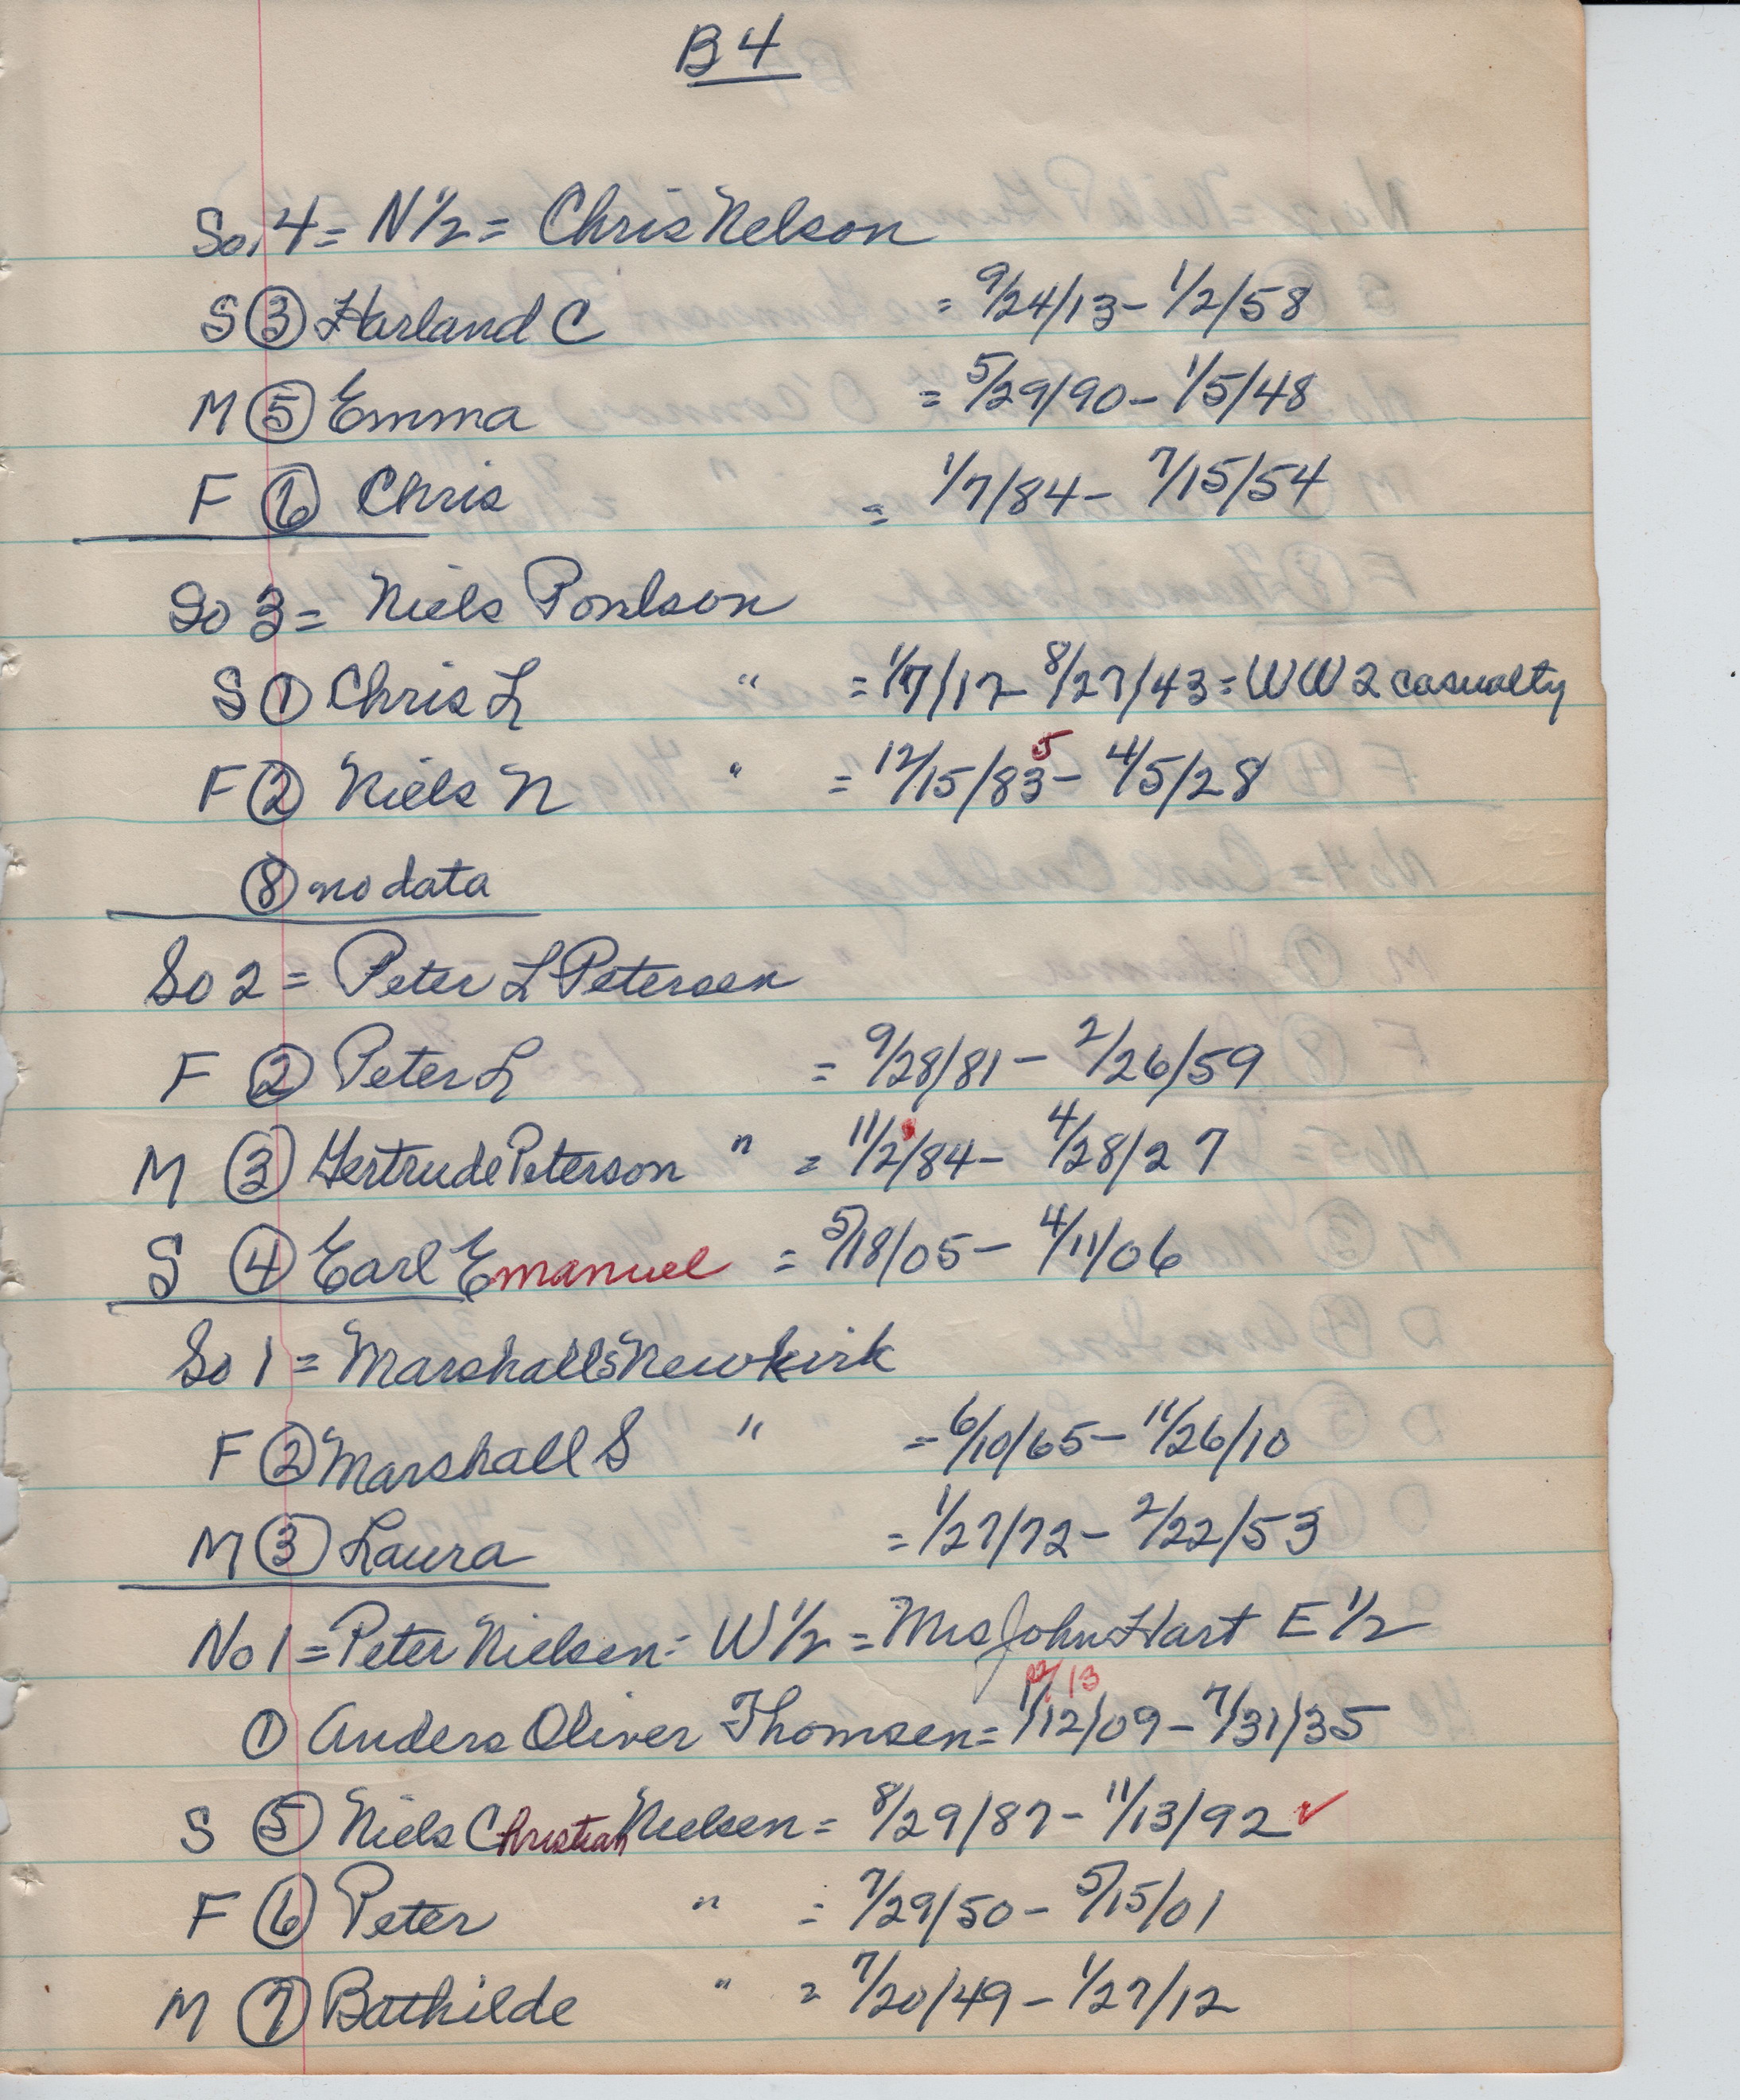 B4
So. 4 = N 1/2 = Chris Nelson
S ③ Harland C = 9/24/13 - 1/2/58
M ⑤ Emma = 5/29/90 - 1/5/48
F ⑥ Chris = 1/7/84 - 7/15/54
So 3 = Niels Poulson
S ① Chris L " = 1/7/17 - 8/27/43 = WW2 casualty
5
F ② Niels N " = 12/15/83 - 4/5/28
⑧ no data
So 2 = Peter L Petersen
F ② Peter L = 9/28/81 - 2/26/59
M ③ Gertrude Peterson " = 11/2/84 - 4/28/27
S ④ Earl Emanuel = 5/18/05 - 4/11/06
So 1 = Marshall S Newkirk
F ② Marshall S " = 6/10/65 - 11/26/10
M ③ Laura = 1/27/72 - 2/22/53
No 1 = Peter Nielsen - W 1/2 = Mrs John Hart E 1/2
12/13
① Anders Oliver Thomsen = 1/12/09 - 7/31/35
S ⑤ Niels Christian Nielsen = 8/29/87 - 11/13/92 ✓
F ⑥ Peter " = 7/29/50 - 5/15/01
M ⑦ Bathilde " = 7/20/49 - 1/27/12